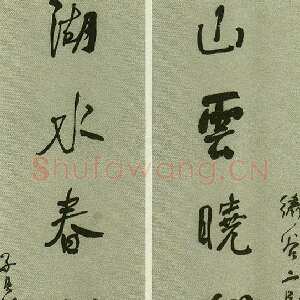 繡谷二兄
山雲曉
湖水春
Shufawang.CN